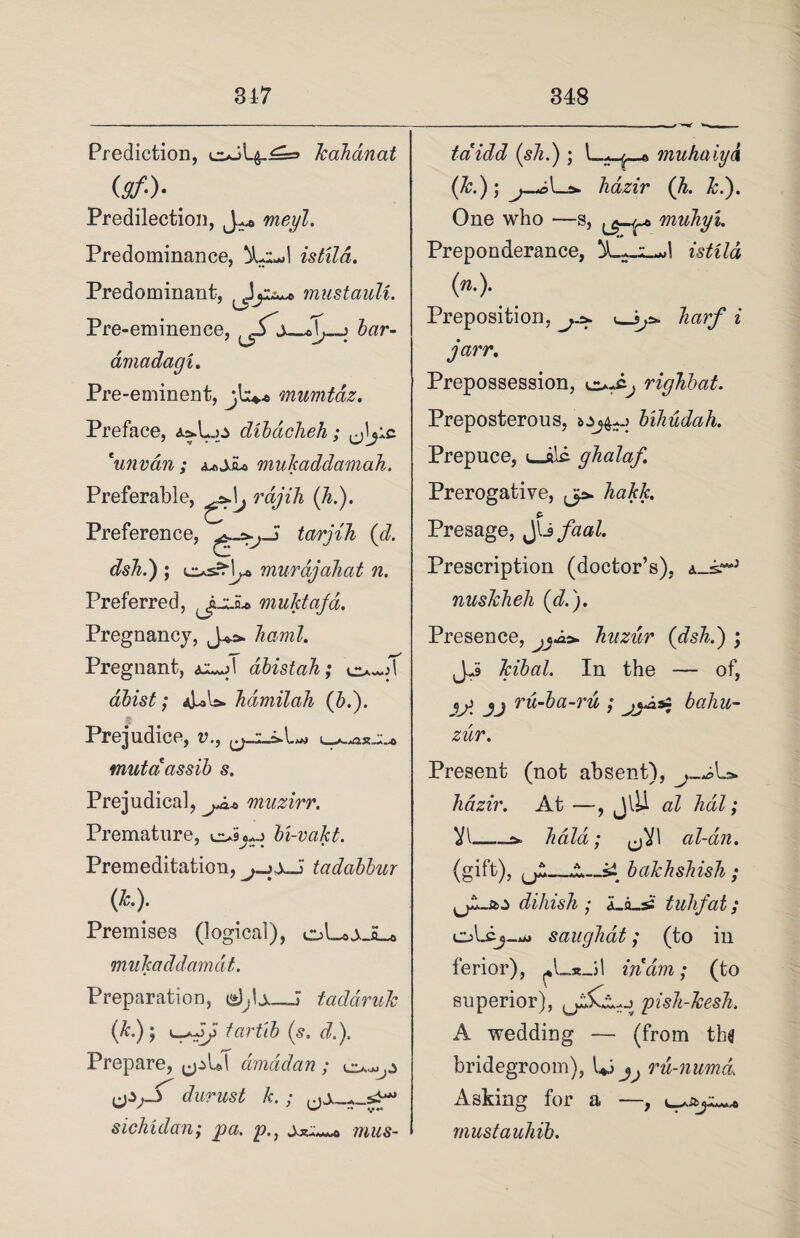 347
348
Prediction, کهانت kahánat
(gf.).
Predilection, میل meyl.
Predominance, استیلا istílá.
Predominant, مستولی mustaulí.
Pre-eminence, برآمدگی bar-
ámadagí.
Pre-eminent, ممتاز mumtáz.
Preface, دیباچه díbácheh; عنوان
'unván; مقدمه mukaddamah.
Preferable, راجح rájih (h.).
Preference, ترجیح tarjíh (d.
dsh.); مراجحت murájahat n.
Preferred, مقتفی muktafá.
Pregnancy, حمل haml.
Pregnant, آبسته ábistah; آبست
ábist; حامله hámilah (b.).
Prejudice, v., متعصب ساختن
muta'assib s.
Prejudical, مضر muzirr.
Premature, بیوقت bí-vakt.
Premeditation, تدبر tadabbur
(k.).
Premises (logical), مقدمات
mukaddamát.
Preparation, تدارك tadáruk
(k.); ترتیب tartíb (s. d.).
Prepare, آمادن ámádan; درست
کردن durust k.; سیچیدن
síchídan; pa. p., مستعد mus-
ta'idd (sh.); مهیا muhaiyá
(k.); حاضر házir (h. k.).
One who —s, مهیی muhyí.
Preponderance, استیلا istílá
(n.).
Preposition, حرف جر harf i
jarr.
Prepossession, رغبت righbat.
Preposterous, بیهوده bíhúdah.
Prepuce, غلاف ghalaf.
Prerogative, حق hakk.
Presage, فال faal.
Prescription (doctor's), نسخه
nuskheh (d.).
Presence, حضور huzúr (dsh.);
قبل kibal. In the — of,
رو برو rú-ba-rú; بحضور bahu-
zúr.
Present (not absent), حاضر
házir. At —, الحال al hál;
حالا hálá; الآن al-án.
(gift), بخشش bakhshish;
دهش dihish; تحفة tuhfat;
سوغات saughát; (to in
ferior), انعام in'ám; (to
superior), پیشکش písh-kesh.
A wedding — (from the
bridegroom), رو نما rú-numá.
Asking for a —, مستوهب
mustauhib.